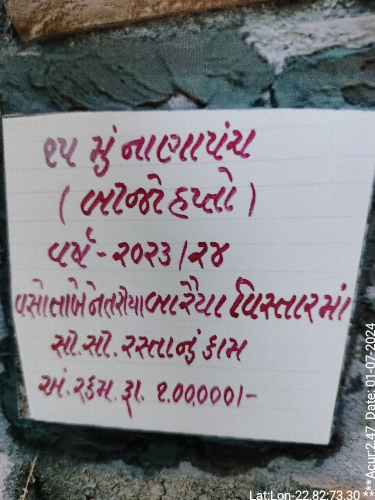 ૧૫ મું નાણાપંચ
( બીજો હપ્તો )
વર્ષ - ૨૦૨૩ / ૨૪
બારૈયા વિસ્તારમાં
સી. સી. રસ્તાનું કામ
અં. રકમ. રૂા. ૧.૦૦,૦૦૦/-
Lat:Lon-22.82:73.30
***Acur:2.47 Date: 01-07-2024